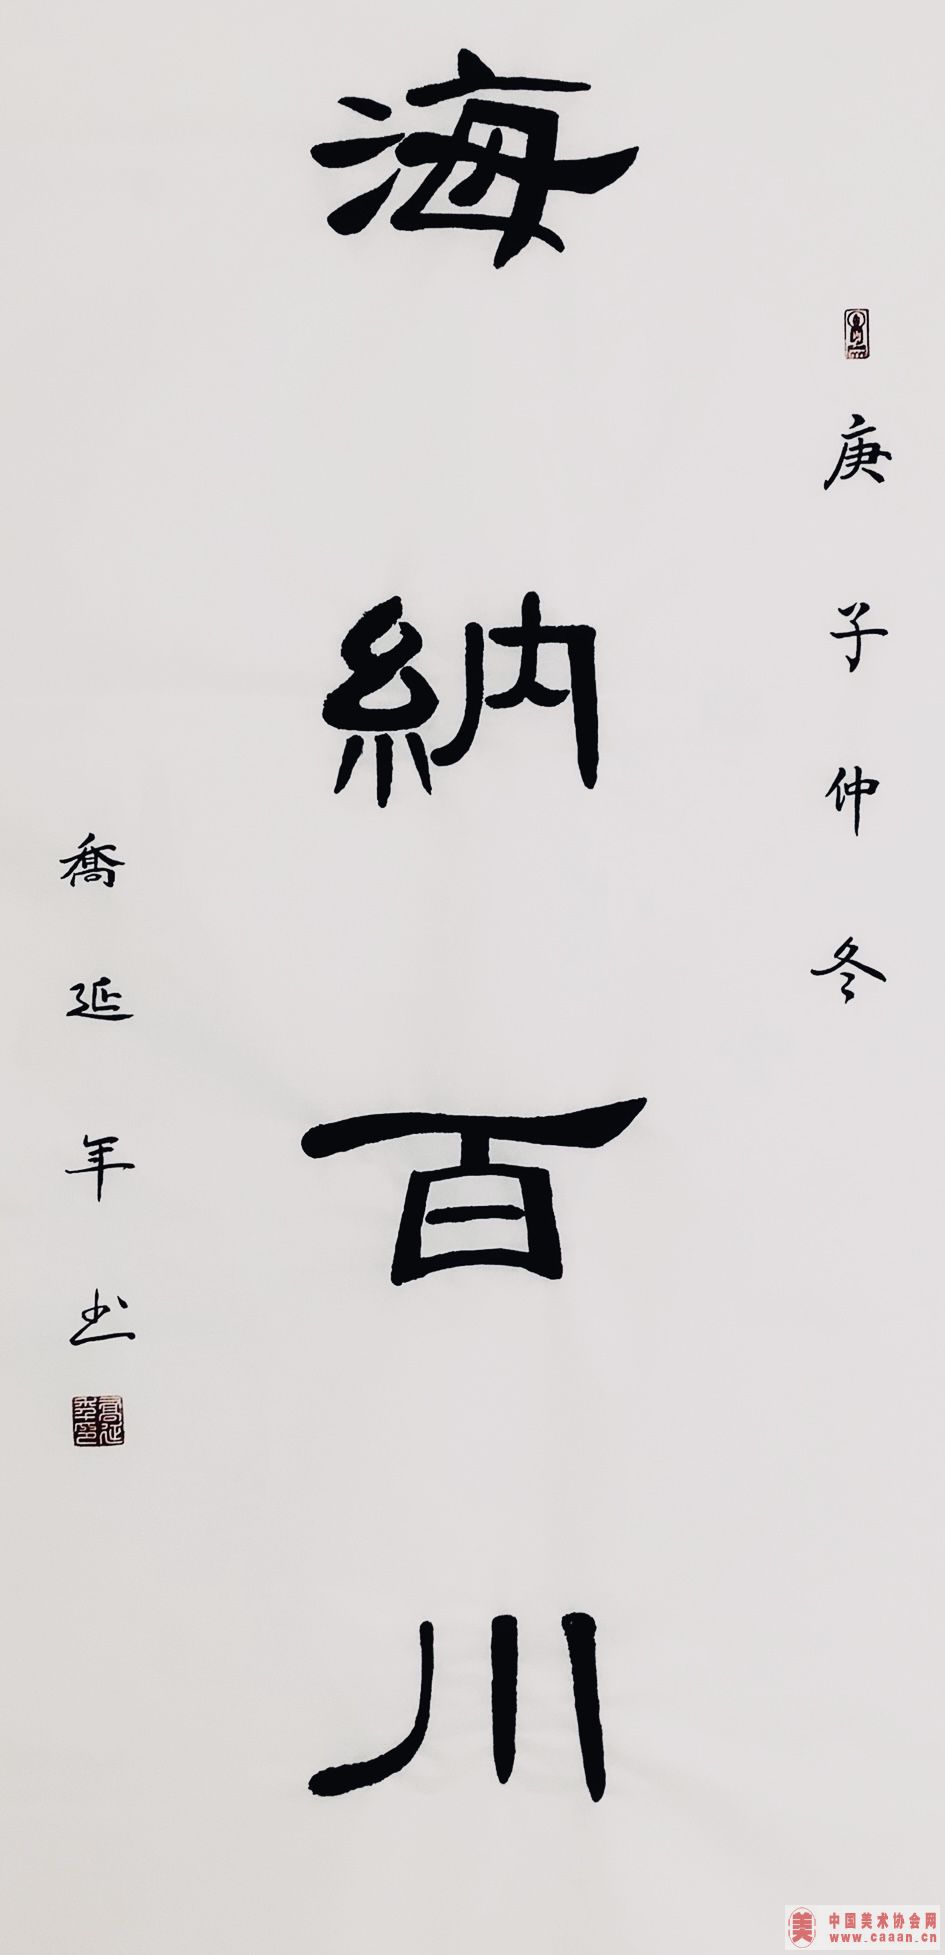 庚子仲冬
海納百川
喬延年书
喬延年印
中国美术协会网
www.caaan.cn